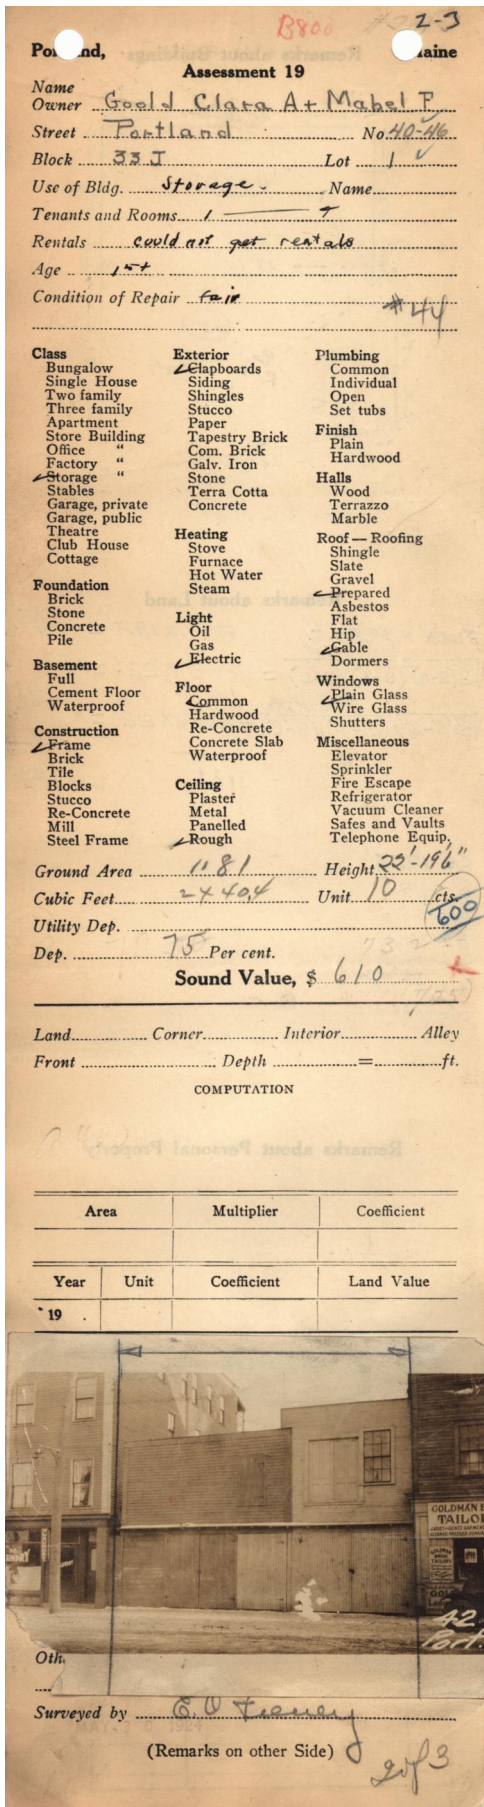 B800 2-3
Portland, Maine
Assessment 19
Name
Owner Goold Clara A + Mabel F
Street Portland No. 40-46
Block 33 J Lot 1
Use of Bldg. Storage. Name
Tenants and Rooms 1
Rentals could not get rentals
Age 1st
Condition of Repair fair
#44
Class
Bungalow
Single House
Two family
Three family
Apartment
Store Building
Office "
Factory "
Storage "
Stables
Garage, private
Garage, public
Theatre
Club House
Cottage
Foundation
Brick
Stone
Concrete
Pile
Basement
Full
Cement Floor
Waterproof
Construction
Frame
Brick
Tile
Blocks
Stucco
Re-Concrete
Mill
Steel Frame
Exterior
Clapboards
Siding
Shingles
Stucco
Paper
Tapestry Brick
Com. Brick
Galv. Iron
Stone
Terra Cotta
Concrete
Heating
Stove
Furnace
Hot Water
Steam
Light
Oil
Gas
Electric
Floor
Common
Hardwood
Re-Concrete
Concrete Slab
Waterproof
Ceiling
Plaster
Metal
Panelled
Rough
Plumbing
Common
Individual
Open
Set tubs
Finish
Plain
Hardwood
Halls
Wood
Terrazzo
Marble
Roof — Roofing
Shingle
Slate
Gravel
Prepared
Asbestos
Flat
Hip
Gable
Dormers
Windows
Plain Glass
Wire Glass
Shutters
Miscellaneous
Elevator
Sprinkler
Fire Escape
Refrigerator
Vacuum Cleaner
Safes and Vaults
Telephone Equip.
Ground Area 1181 Height 22'-19'6"
Cubic Feet 24404 Unit 10 cts.
600
Utility Dep.
Dep. 75 Per cent.
Sound Value, $ 610
Land Corner Interior Alley
Front Depth = ft.
COMPUTATION
Area Multiplier Coefficient
Year Unit Coefficient Land Value
19
GOLDMAN
TAILO
42
Port.
Oth
Surveyed by E. O
(Remarks on other Side)
2 of 3